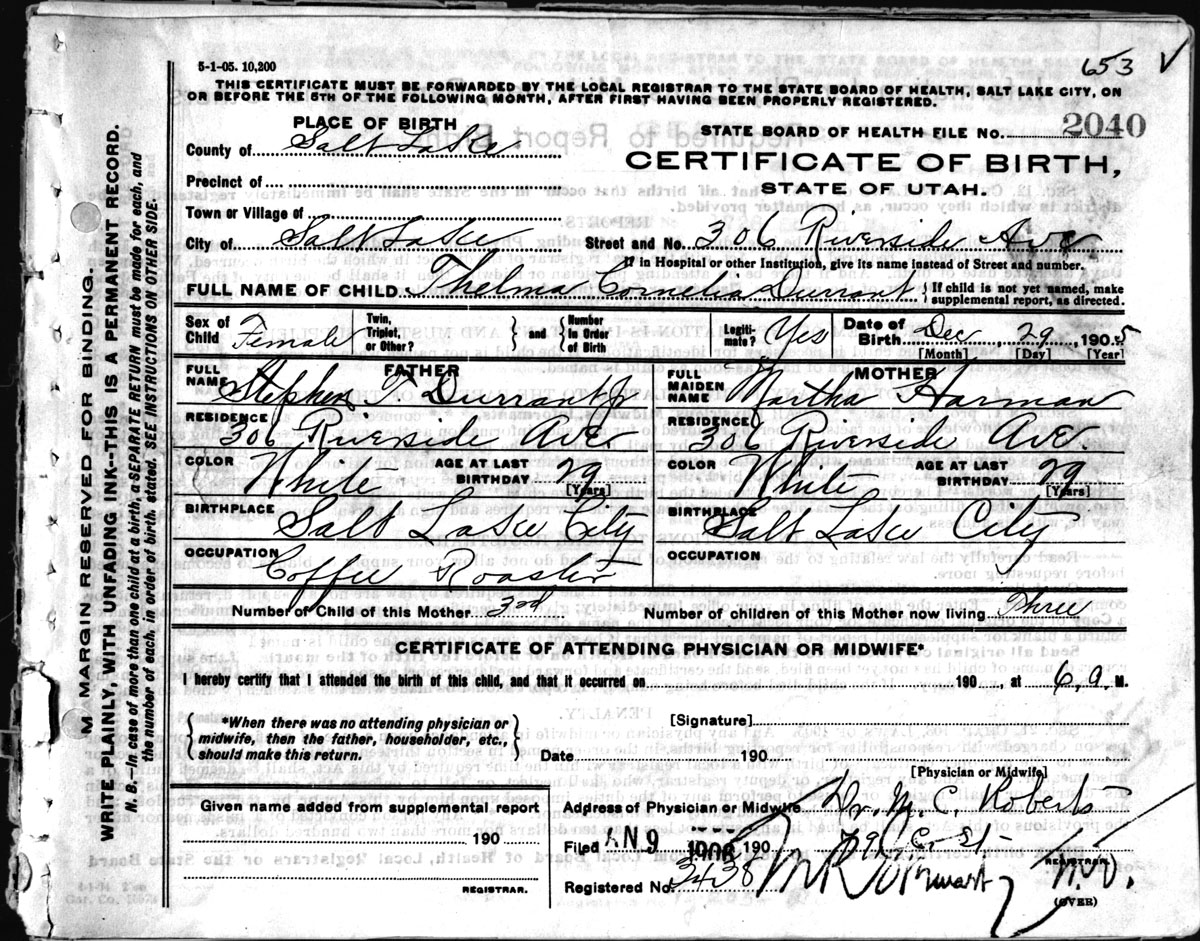 653 V
5-1-05. 10,200
THIS CERTIFICATE MUST BE FORWARDED BY THE LOCAL REGISTRAR TO THE STATE BOARD OF HEALTH, SALT LAKE CITY, ON
OR BEFORE THE 5TH OF THE FOLLOWING MONTH, AFTER FIRST HAVING BEEN PROPERLY REGISTERED.
PLACE OF BIRTH
STATE BOARD OF HEALTH FILE No. 2040
County of Salt Lake
CERTIFICATE OF BIRTH,
Precinct of
STATE OF UTAH.
Town or Village of
City of Salt Lake Street and No. 306 Riverside Ave
If in Hospital or other Institution, give its name instead of Street and number.
FULL NAME OF CHILD Thelma Cornelia Durrant } If child is not yet named, make supplemental report, as directed.
Sex of Child Female Twin, Triplet, or Other? } and { Number in Order of Birth Legitimate? Yes Date of Birth Dec 29, 1905
[Month] [Day] [Year]
FATHER
FULL NAME Stephen T Durrant Jr
RESIDENCE
306 Riverside Ave.
COLOR White AGE AT LAST BIRTHDAY 29
[Years]
BIRTHPLACE Salt Lake City
OCCUPATION Coffee Roaster
MOTHER
FULL MAIDEN NAME Martha Harman
RESIDENCE
306 Riverside Ave.
COLOR White AGE AT LAST BIRTHDAY 29
[Years]
BIRTHPLACE Salt Lake City
OCCUPATION
Number of Child of this Mother 3rd Number of children of this Mother now living Three
CERTIFICATE OF ATTENDING PHYSICIAN OR MIDWIFE*
I hereby certify that I attended the birth of this child, and that it occurred on 190 , at 6, a. M.
{ *When there was no attending physician or midwife, then the father, householder, etc., should make this return. }
[Signature]
Date 190
[Physician or Midwife]
Given name added from supplemental report
190
REGISTRAR.
Address of Physician or Midwife Dr. M. C. Roberts
Filed 190
Registered No. 3438
REGISTRAR.
(OVER)
MARGIN RESERVED FOR BINDING.
WRITE PLAINLY, WITH UNFADING INK--THIS IS A PERMANENT RECORD.
N. B.--In case of more than one child at a birth, a SEPARATE RETURN must be made for each, and
the number of each, in order of birth, stated. SEE INSTRUCTIONS ON OTHER SIDE.